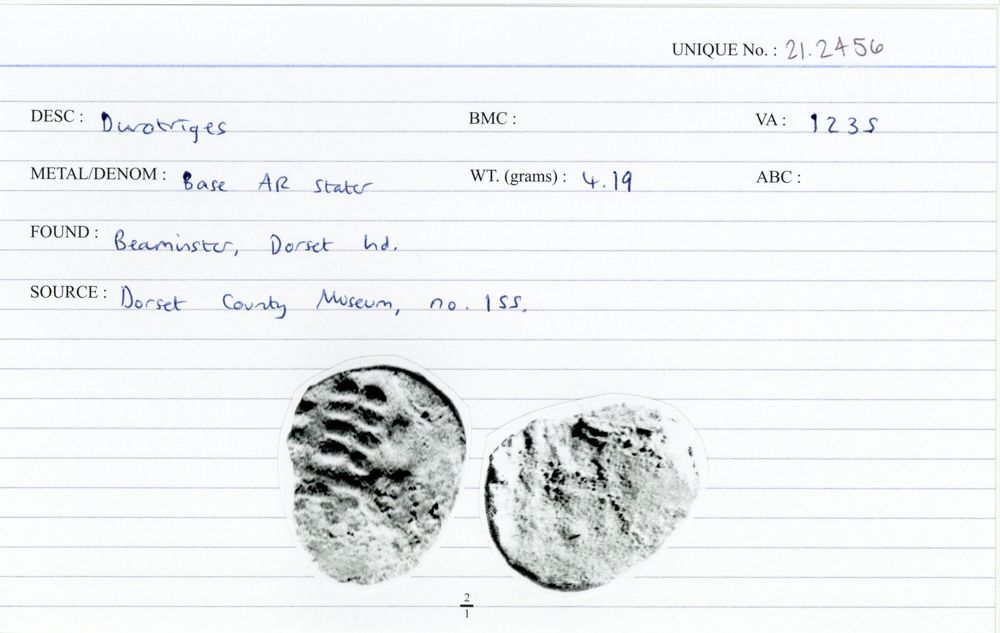 UNIQUE No. : 21.2456
DESC : Durotriges BMC : VA : 1235
METAL/DENOM : Base AR stater WT. (grams) : 4.19 ABC :
FOUND : Beaminster, Dorset hd.
SOURCE : Dorset County Museum, no. 155.
2
1